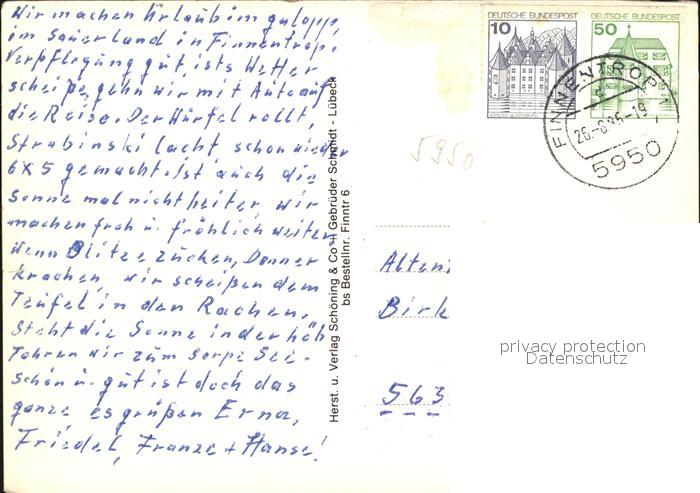 Wir machen Urlaub im galopp,
im Sauerland in Finnentrop.
Verpflegung gut, ists Wetter
scheiße, gehn wir mit Auto auf
die Reise. Der Würfel rollt,
Strabinski lacht schon wieder
6x5 gemacht. Ist auch die
Sonne mal nicht heiter wir
machen froh u. fröhlich weiter
Wenn Blitze zucken, Donner
krachen, wir scheißen dem
Teufel in den Rachen,
Steht die Sonne in der höh
fahren wir zum Sorpe See.
Schön u. gut ist doch das
ganze es grüßen Erna,
Friedel, Franze + Hanse!
Herst. u. Verlag Schöning & Co + Gebrüder Schmidt - Lübeck
bs Bestellnr. Finntr 6
DEUTSCHE BUNDESPOST
10
DEUTSCHE BUNDESPOST
50
FINNENTROP 1
26.-6.85-19
5950
5950
Alten
Birk
563
privacy protection
Datenschutz